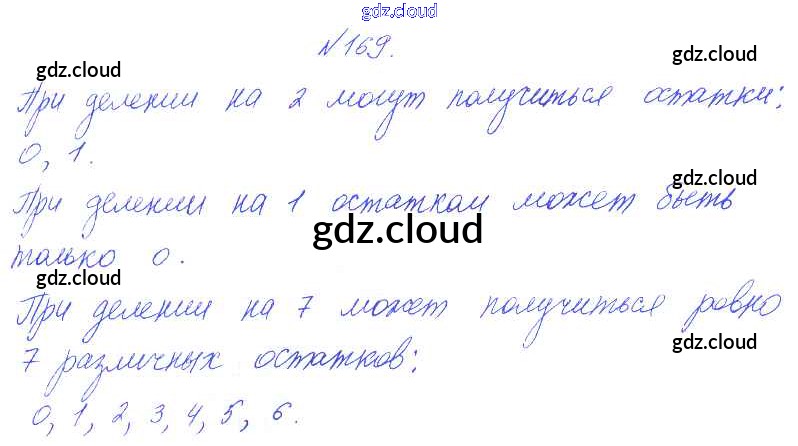 gdz.cloud
№169.
gdz.cloud
gdz.cloud
При делении на 2 могут получиться остатки:
0, 1.
gdz.cloud
При делении на 1 остатком может быть
gdz.cloud
только 0.
gdz.cloud
При делении на 7 может получиться ровно
gdz.cloud
7 различных остатков:
0, 1, 2, 3, 4, 5, 6.